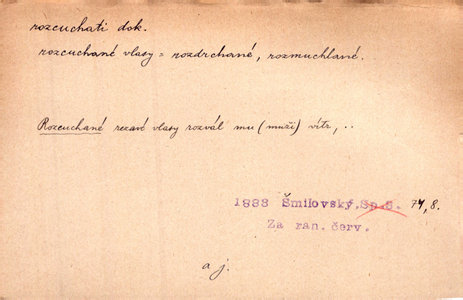 rozcuchati dok.
rozcuchané vlasy = rozdrchané, rozmuchlané.
Rozcuchané rezavé vlasy rozvál mu (muži) vítr, ..
1883 Šmilovský. Sp. 5. 74, 8.
Za ran. červ.
a j.